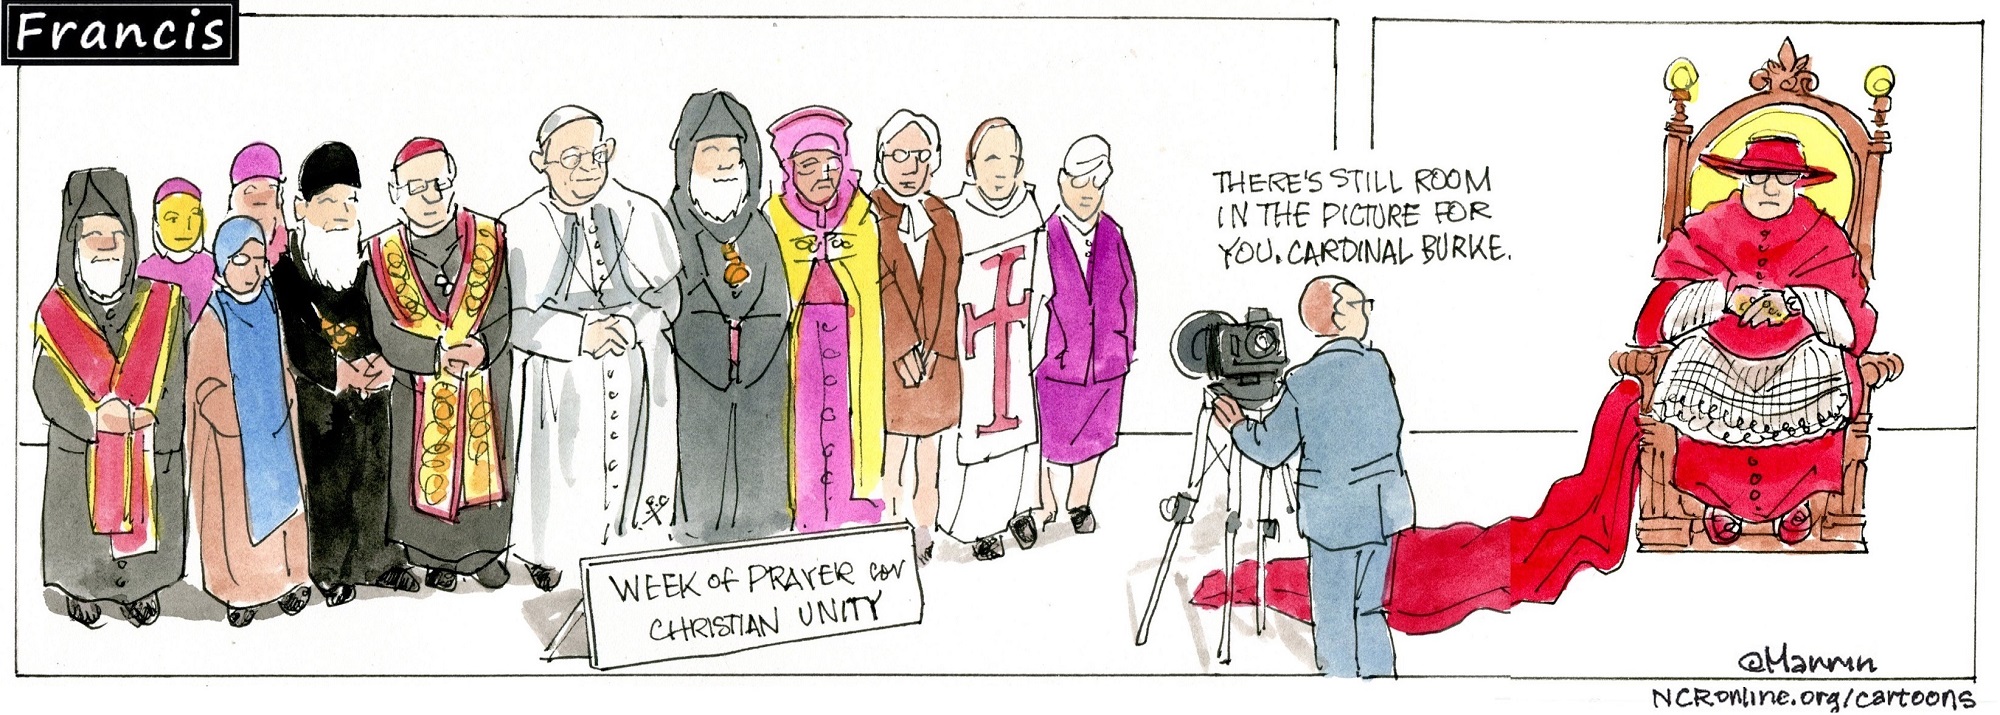 Francis
THERE'S STILL ROOM
IN THE PICTURE FOR
YOU. CARDINAL BURKE.
WEEK OF PRAYER for
CHRISTIAN UNITY
@Marrin
NCRonline.org/cartoons